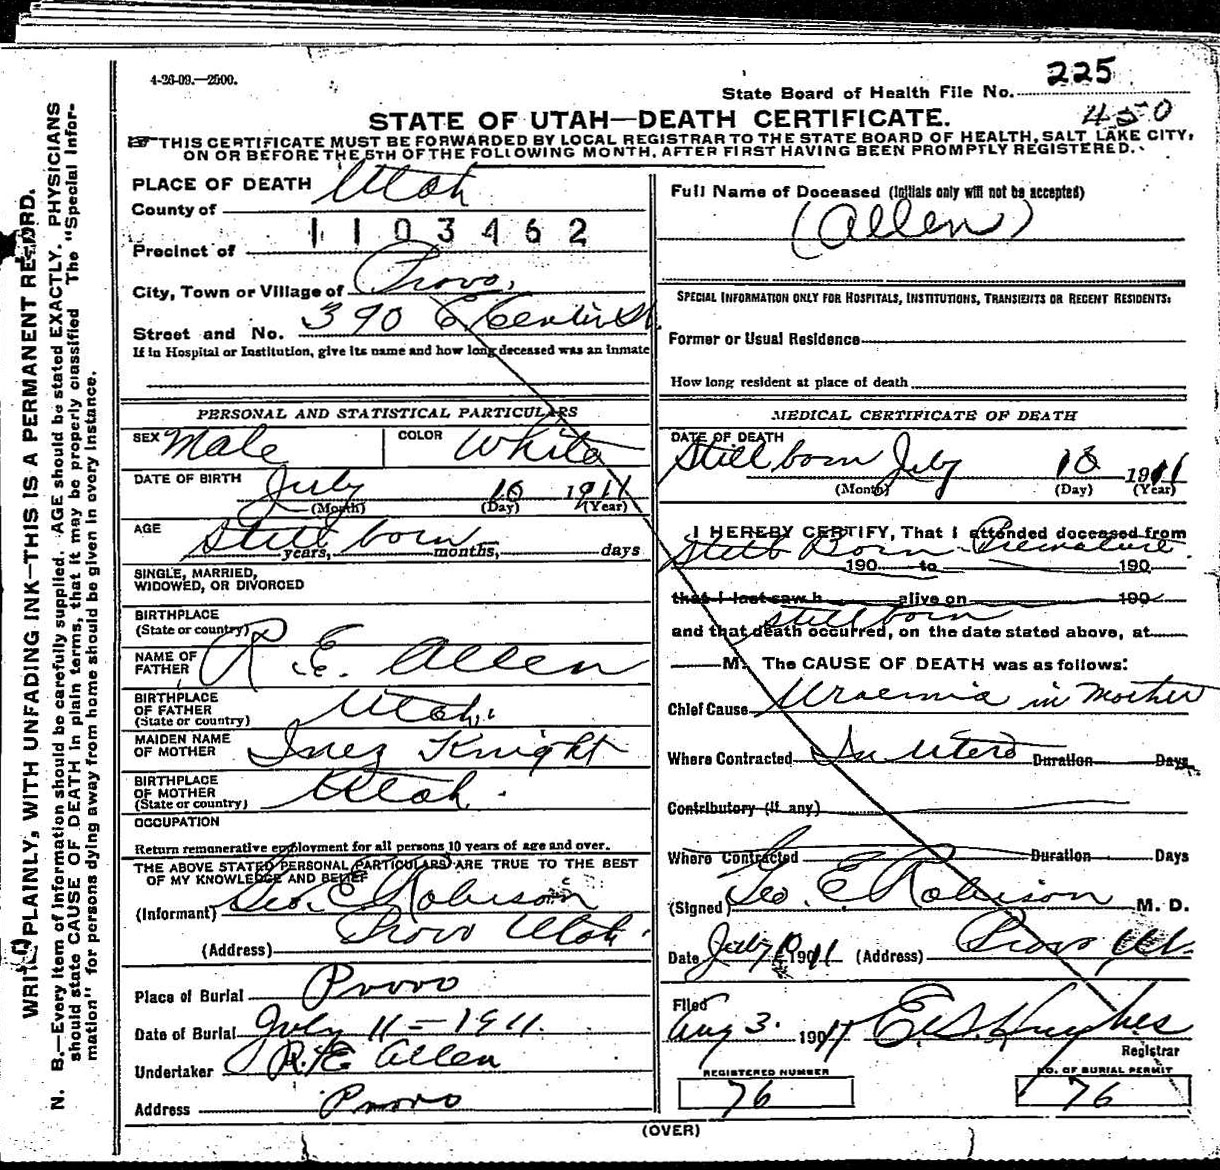 4-26-09.—2500.
State Board of Health File No. 225
450
STATE OF UTAH—DEATH CERTIFICATE.
THIS CERTIFICATE MUST BE FORWARDED BY LOCAL REGISTRAR TO THE STATE BOARD OF HEALTH, SALT LAKE CITY,
ON OR BEFORE THE 5TH OF THE FOLLOWING MONTH, AFTER FIRST HAVING BEEN PROMPTLY REGISTERED.
WRITE PLAINLY, WITH UNFADING INK—THIS IS A PERMANENT RECORD.
N. B.—Every item of information should be carefully supplied. AGE should be stated EXACTLY. PHYSICIANS
should state CAUSE OF DEATH in plain terms, that it may be properly classified The "Special Infor-
mation" for persons dying away from home should be given in every instance.
PLACE OF DEATH
County of Utah
1103462
Precinct of
City, Town or Village of Provo,
Street and No. 390 E Center St.
If in Hospital or Institution, give its name and how long deceased was an inmate
PERSONAL AND STATISTICAL PARTICULARS
SEX Male COLOR White
DATE OF BIRTH July 10 1911
(Month) (Day) (Year)
AGE Still born
years, months, days
SINGLE, MARRIED,
WIDOWED, OR DIVORCED
BIRTHPLACE
(State or country)
NAME OF
FATHER R. E. Allen
BIRTHPLACE
OF FATHER
(State or country) Utah.
MAIDEN NAME
OF MOTHER Inez Knight
BIRTHPLACE
OF MOTHER
(State or country) Utah.
OCCUPATION
Return remunerative employment for all persons 10 years of age and over.
THE ABOVE STATED PERSONAL PARTICULARS ARE TRUE TO THE BEST
OF MY KNOWLEDGE AND BELIEF
(Informant) Geo. E Robison
(Address) Provo Utah.
Place of Burial Provo
Date of Burial July 11-1911.
Undertaker R. E. Allen
Address Provo
Full Name of Deceased (Initials only will not be accepted)
(Allen)
SPECIAL INFORMATION ONLY FOR HOSPITALS, INSTITUTIONS, TRANSIENTS OR RECENT RESIDENTS:
Former or Usual Residence
How long resident at place of death
MEDICAL CERTIFICATE OF DEATH
DATE OF DEATH
Still born July 10 1911
(Month) (Day) (Year)
I HEREBY CERTIFY, That I attended deceased from
Still Born Premature.
190 to 190
that I last saw h alive on 190
still born
and that death occurred, on the date stated above, at
M. The CAUSE OF DEATH was as follows:
Chief Cause Uraemia in Mother
Where Contracted In Utero Duration Days
Contributory (if any)
Where Contracted Duration Days
(Signed) Geo. E Robison M. D.
Date July 10 1911 (Address) Provo Ut.
Filed
Aug 3. 1911 Hughes
Registrar
REGISTERED NUMBER
76
NO. OF BURIAL PERMIT
76
(OVER)